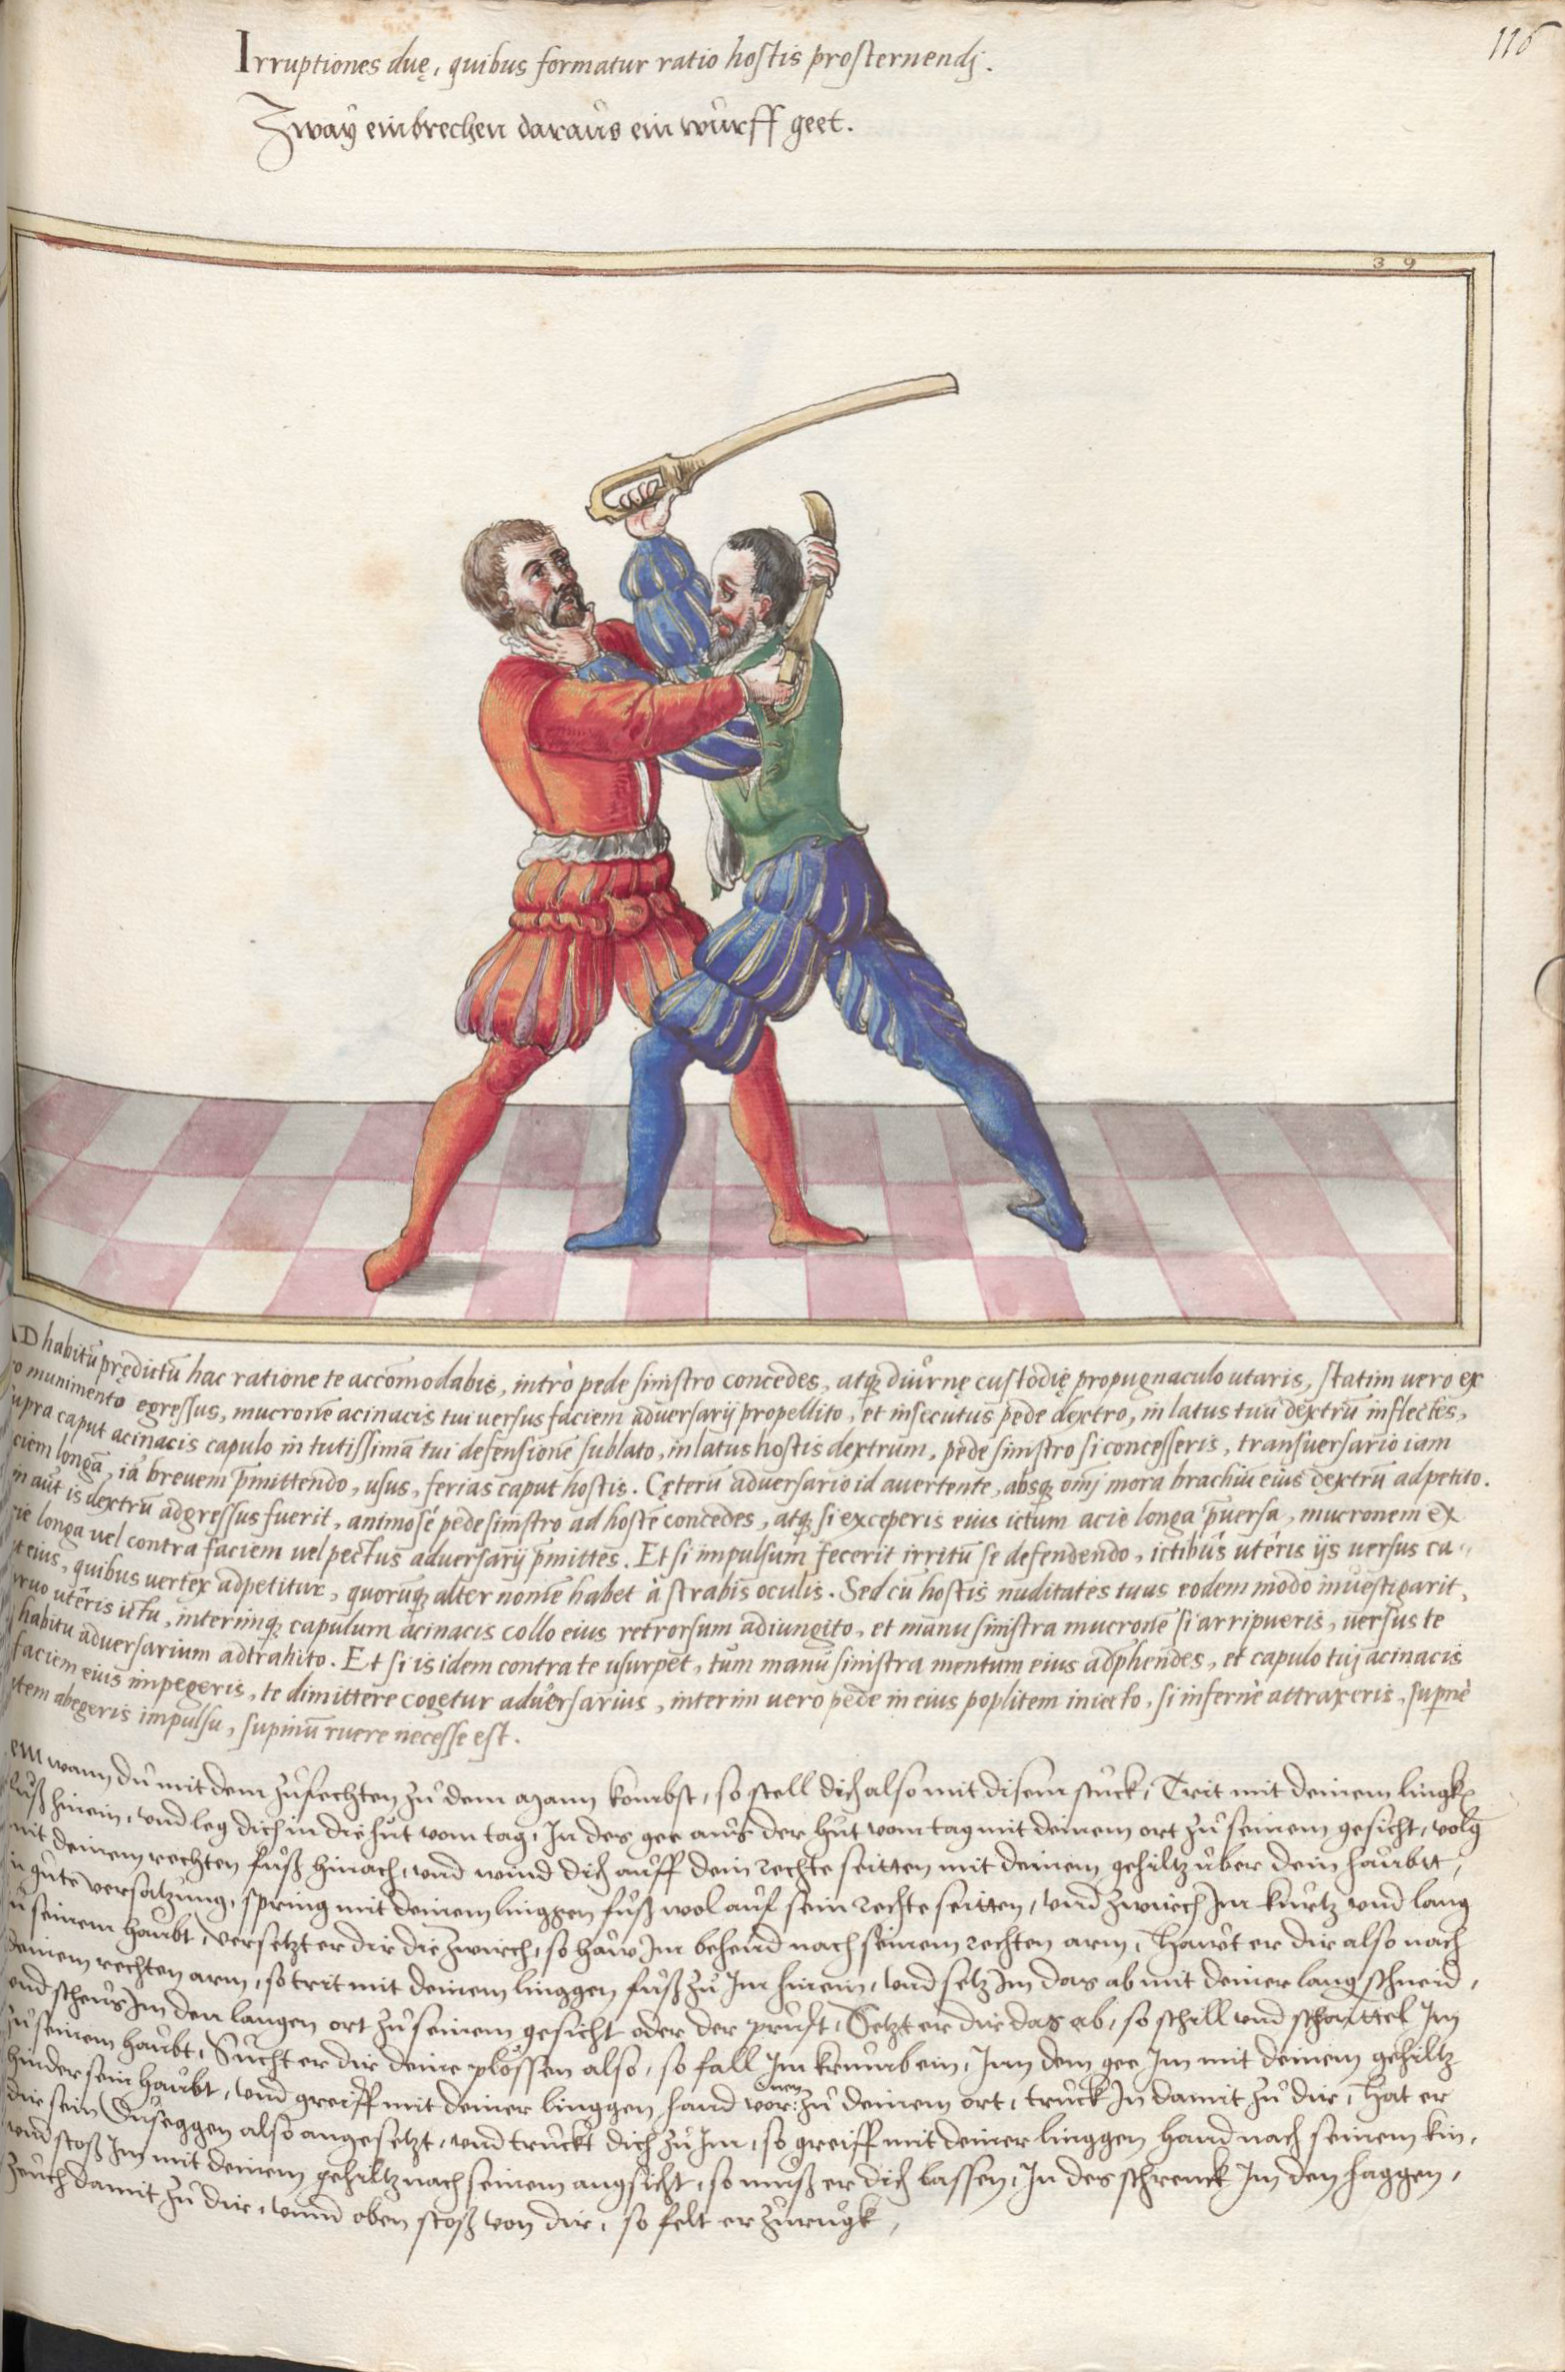 116
Irruptiones duę, quibus formatur ratio hostis prosternendj.
Zway einbrechen daraus ein wurff geet.
39
AD habitũ prędictũ hac ratione te accõmodabis, intrò pede sinistro concedes, atq́ diurnę custodię propugnaculo utaris, statim uero ex
munimento egressus, mucronẽ acinacis tui uersus faciem aduersarij propellito, et insecutus pede dextro, in latus tuũ dextrũ inflectes,
supra caput acinacis capulo in tutissimã tui defensionẽ sublato, in latus hostis dextrum, pede sinistro si concesseris, transuersario iam
aciem longã, iã breuem p̃mittendo, usus, ferias caput hostis. Cęterũ aduersario id auertente, absq́ omj mora brachiũ eius dextrũ adpetito.
aut is dextrũ adgressus fuerit, animosè pede sinistro ad hostẽ concedes, atq́ si exceperis eius ictum acie longa p̃uersa, mucronem ex
acie longa uel contra faciem uel pectus aduersarij p̃mittes. Et si impulsum fecerit irritũ se defendendo, ictibus utêris ijs uersus ca-
put eius, quibus uertex adpetitur, quorumq́ alter nomẽ habet à strabis oculis. Sed cũ hostis nuditates tuas eodem modo inuestigarit,
curuo utêris ictu, interimq́ capulum acinacis collo eius retrorsum adiungito, et manu sinistra mucronẽ si arripueris, uersus te
habitu aduersarium adtrahito. Et si is idem contra te usurpet, tum manu sinistra mentum eius adp̃hendes, et capulo tuj acinacis
faciem eius impegeris, te dimittere cogetur aduersarius, interim uero pede in eius poplitem iniecto, si infernè attraxeris, supernè
autem abegeris impulsu, supinũ ruere necesse est.
Item wann du mit dem zufechten zu dem Mann kombst, so stell dich also mit disem stuck, Trit mit deinem lingken
fuß hinein, und leg dich in die hut vom tag, In des gee aus der hut vom tag mit deinem ort zu seinem gesicht, volg
mit deinem rechten fuß hinach, und wind dich auff dein rechte seitten mit deinem gehiltz uber dein haubtt,
in gute versatzung, spring mit deinem linggen fuß wol auf sein rechte seitten, und zwirch Im kurtz und lang
zu seinem haubt, versetzt er dir die zwirch, so haw Im behend nach seinem rechten arm, Hawt er dir also nach
deinem rechten arm, so trit mit deinem linggen fuß zu Im hinein, und setz Im das ab mit deiner lang schneid,
und scheus Im den langen ort zu seinem gesicht oder der prust, Setzt er dir das ab, so schill und schaittel Im
zu seinem haubt, Sucht er dir deine plössen also, so fall Im krumb ein, Inn dem gee Im mit deinem gehiltz
hinder sein haubt, und greiff mit deiner linggen hand vornen zu deinem ort, truck In damit zu dir, Hat er
dir sein Duseggen also angesetzt, und truckt dich zu Im, so greiff mit deiner linggen hand nach seinem kin,
und stoß Im mit deinem gehiltz nach seinem angsicht, so muß er dich lassen, In des schrenck Im den haggen,
zeuch damit zu dir, unnd oben stoß von dir, so felt er zurugk,